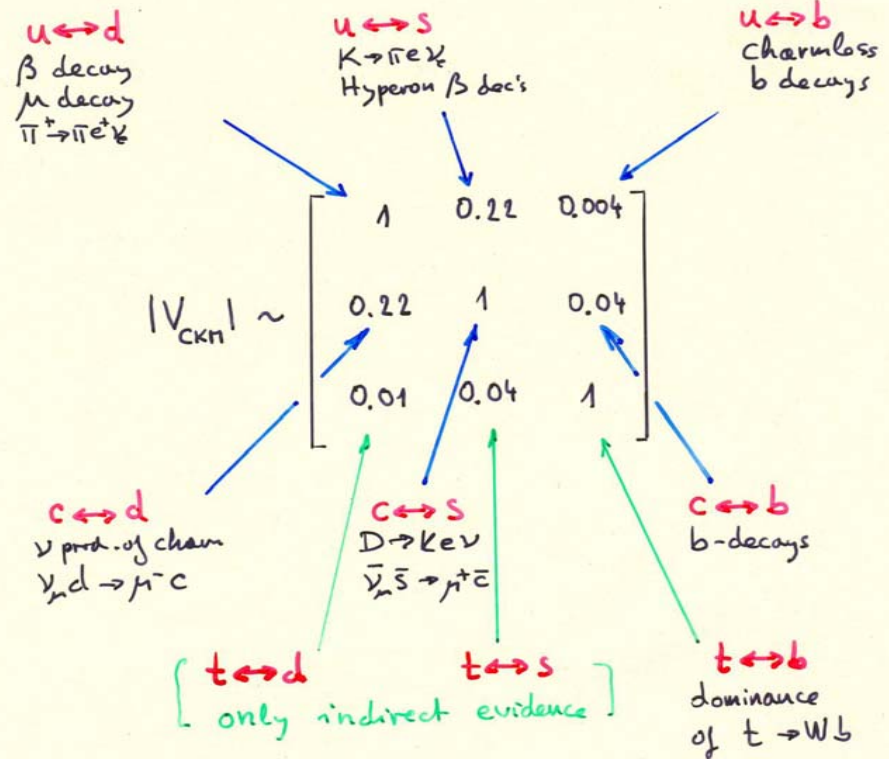 u↔d
β decay
μ decay
π⁺→πe⁺νₑ
u↔s
K→πeνₑ
Hyperon β dec's
u↔b
charmless
b decays
|V_CKM| ~
1 0.22 0.004
0.22 1 0.04
0.01 0.04 1
c↔d
ν prod. of charm
ν_μ d → μ⁻ c
c↔s
D→Keν
ν̄_μ s̄ → μ⁺ c̄
c↔b
b-decays
[ t↔d t↔s ]
only indirect evidence
t↔b
dominance
of t → Wb